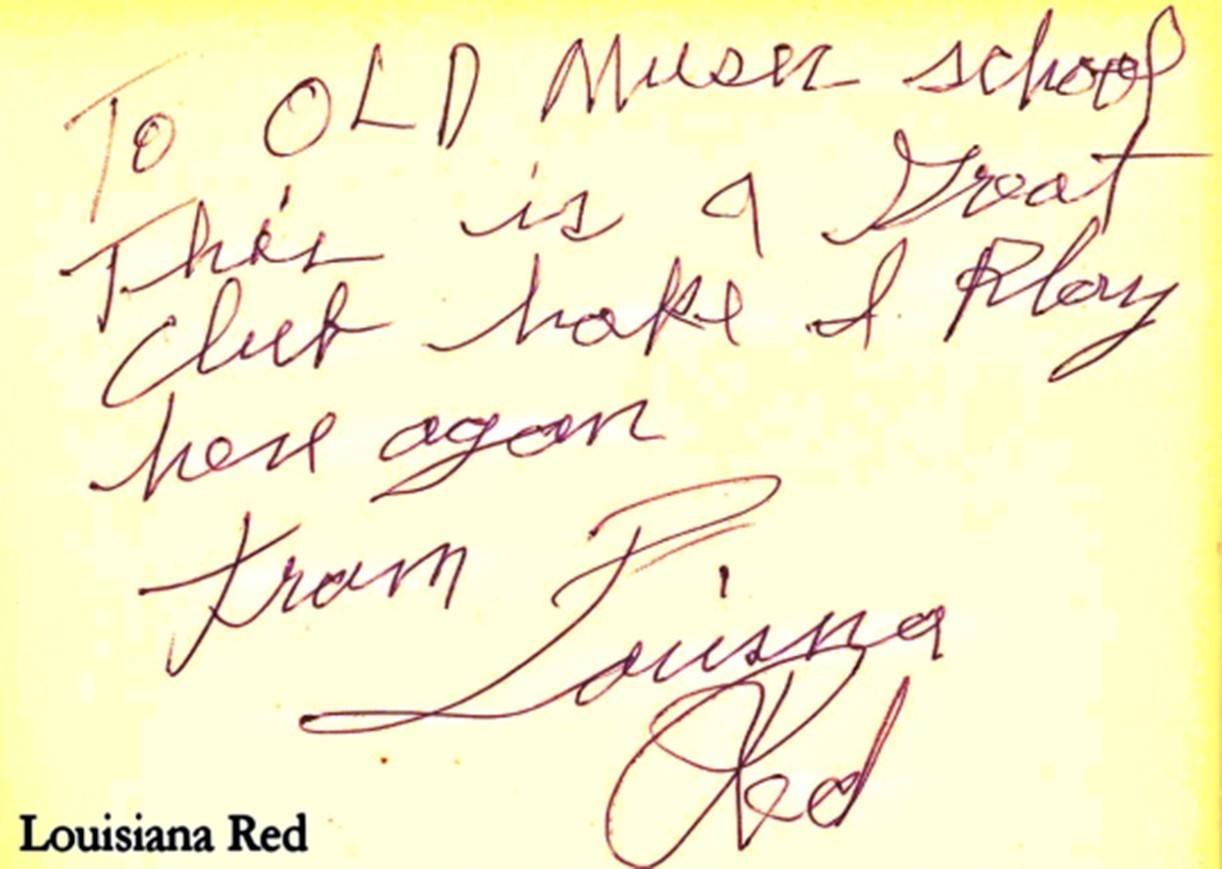 To OLD Music school
This is a Great
Club hope I Play
here again
from
Louisna
Red
Louisiana Red